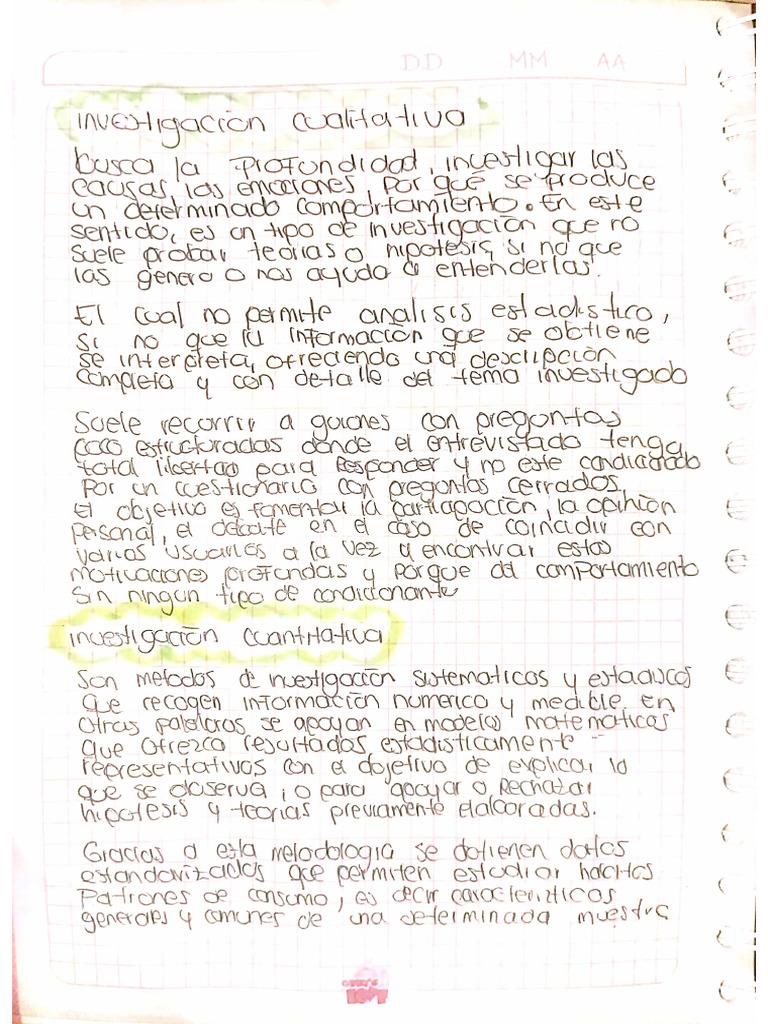 DD MM AA
Investigación cualitativa
busca la profundidad, investigar las
causas, las emociones, por qué se produce
un determinado comportamiento. En este
sentido, es un tipo de investigación que no
suele probar teorias o hipotesis, si no que
las genero o nos ayuda a entenderlas.
El cual no permite analisis estadistico,
si no que la información que se obtiene
se interpreta, ofreciendo una descripción
completa y con detalle del tema investigado
Suele recorrir a guiones con preguntas
poco estructuradas donde el entrevistado tenga
total libertad para responder y no este condicionado
por un cuestionario con preguntas cerradas.
El objetivo es fomentar la participación, la opinión
personal, el debate en el caso de coincidir con
varios usuarios a la vez y encontrar estas
motivaciones profundas y porque del comportamiento
sin ningun tipo de condicionante
Investigación cuantitativa
Son metodos de investigación sistematicos y
que recogen información numerica y medible. En
otras palabras se apoyan en modelos matematicos
que ofrezca resultados estadisticamente
representativos con el objetivo de explicar lo
que se observa, o para apoyar o rechazar
hipotesis y teorias previamente elaboradas.
Gracias a esta metodologia se obtienen datos
estandarizados que permiten estudiar habitos
Patrones de consumo, es decir caracteristicas
generales y comunes de una determinada muestra